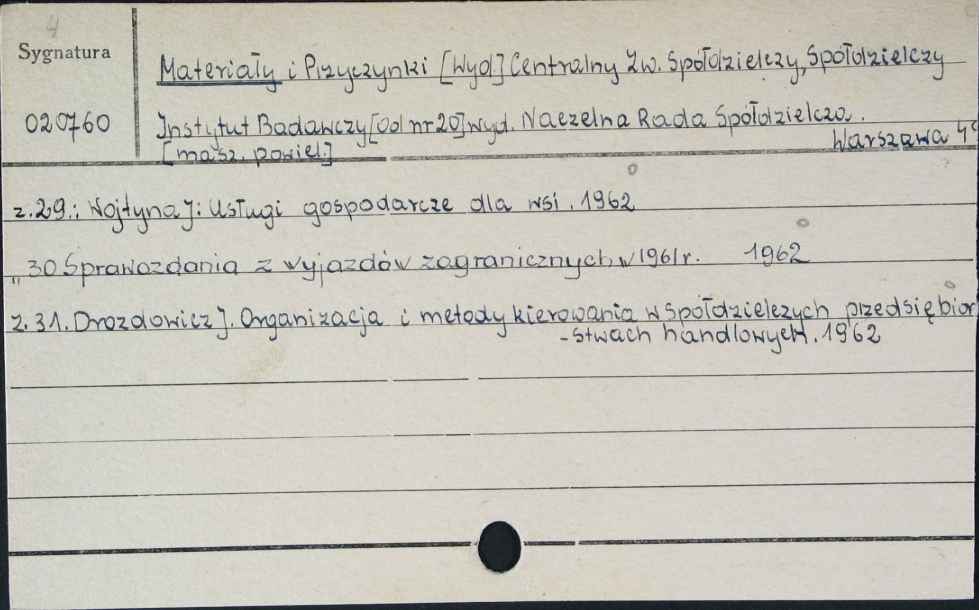 4
Sygnatura
Materiały i Przyczynki [Wyd] Centralny Zw. Spółdzielczy, Spółdzielczy
020760
Instytut Badawczy [Od nr 20] wyd. Naczelna Rada Spółdzielcza.
[masz. powiel.]
Warszawa
z.29.: Wojtyna J: Usługi gospodarcze dla wsi. 1962
" 30 Sprawozdania z wyjazdów zagranicznych w 1961r. 1962
z.31. Drozdowicz J. Organizacja i metody kierowania w spółdzielczych przedsiębior
-stwach handlowych. 1962